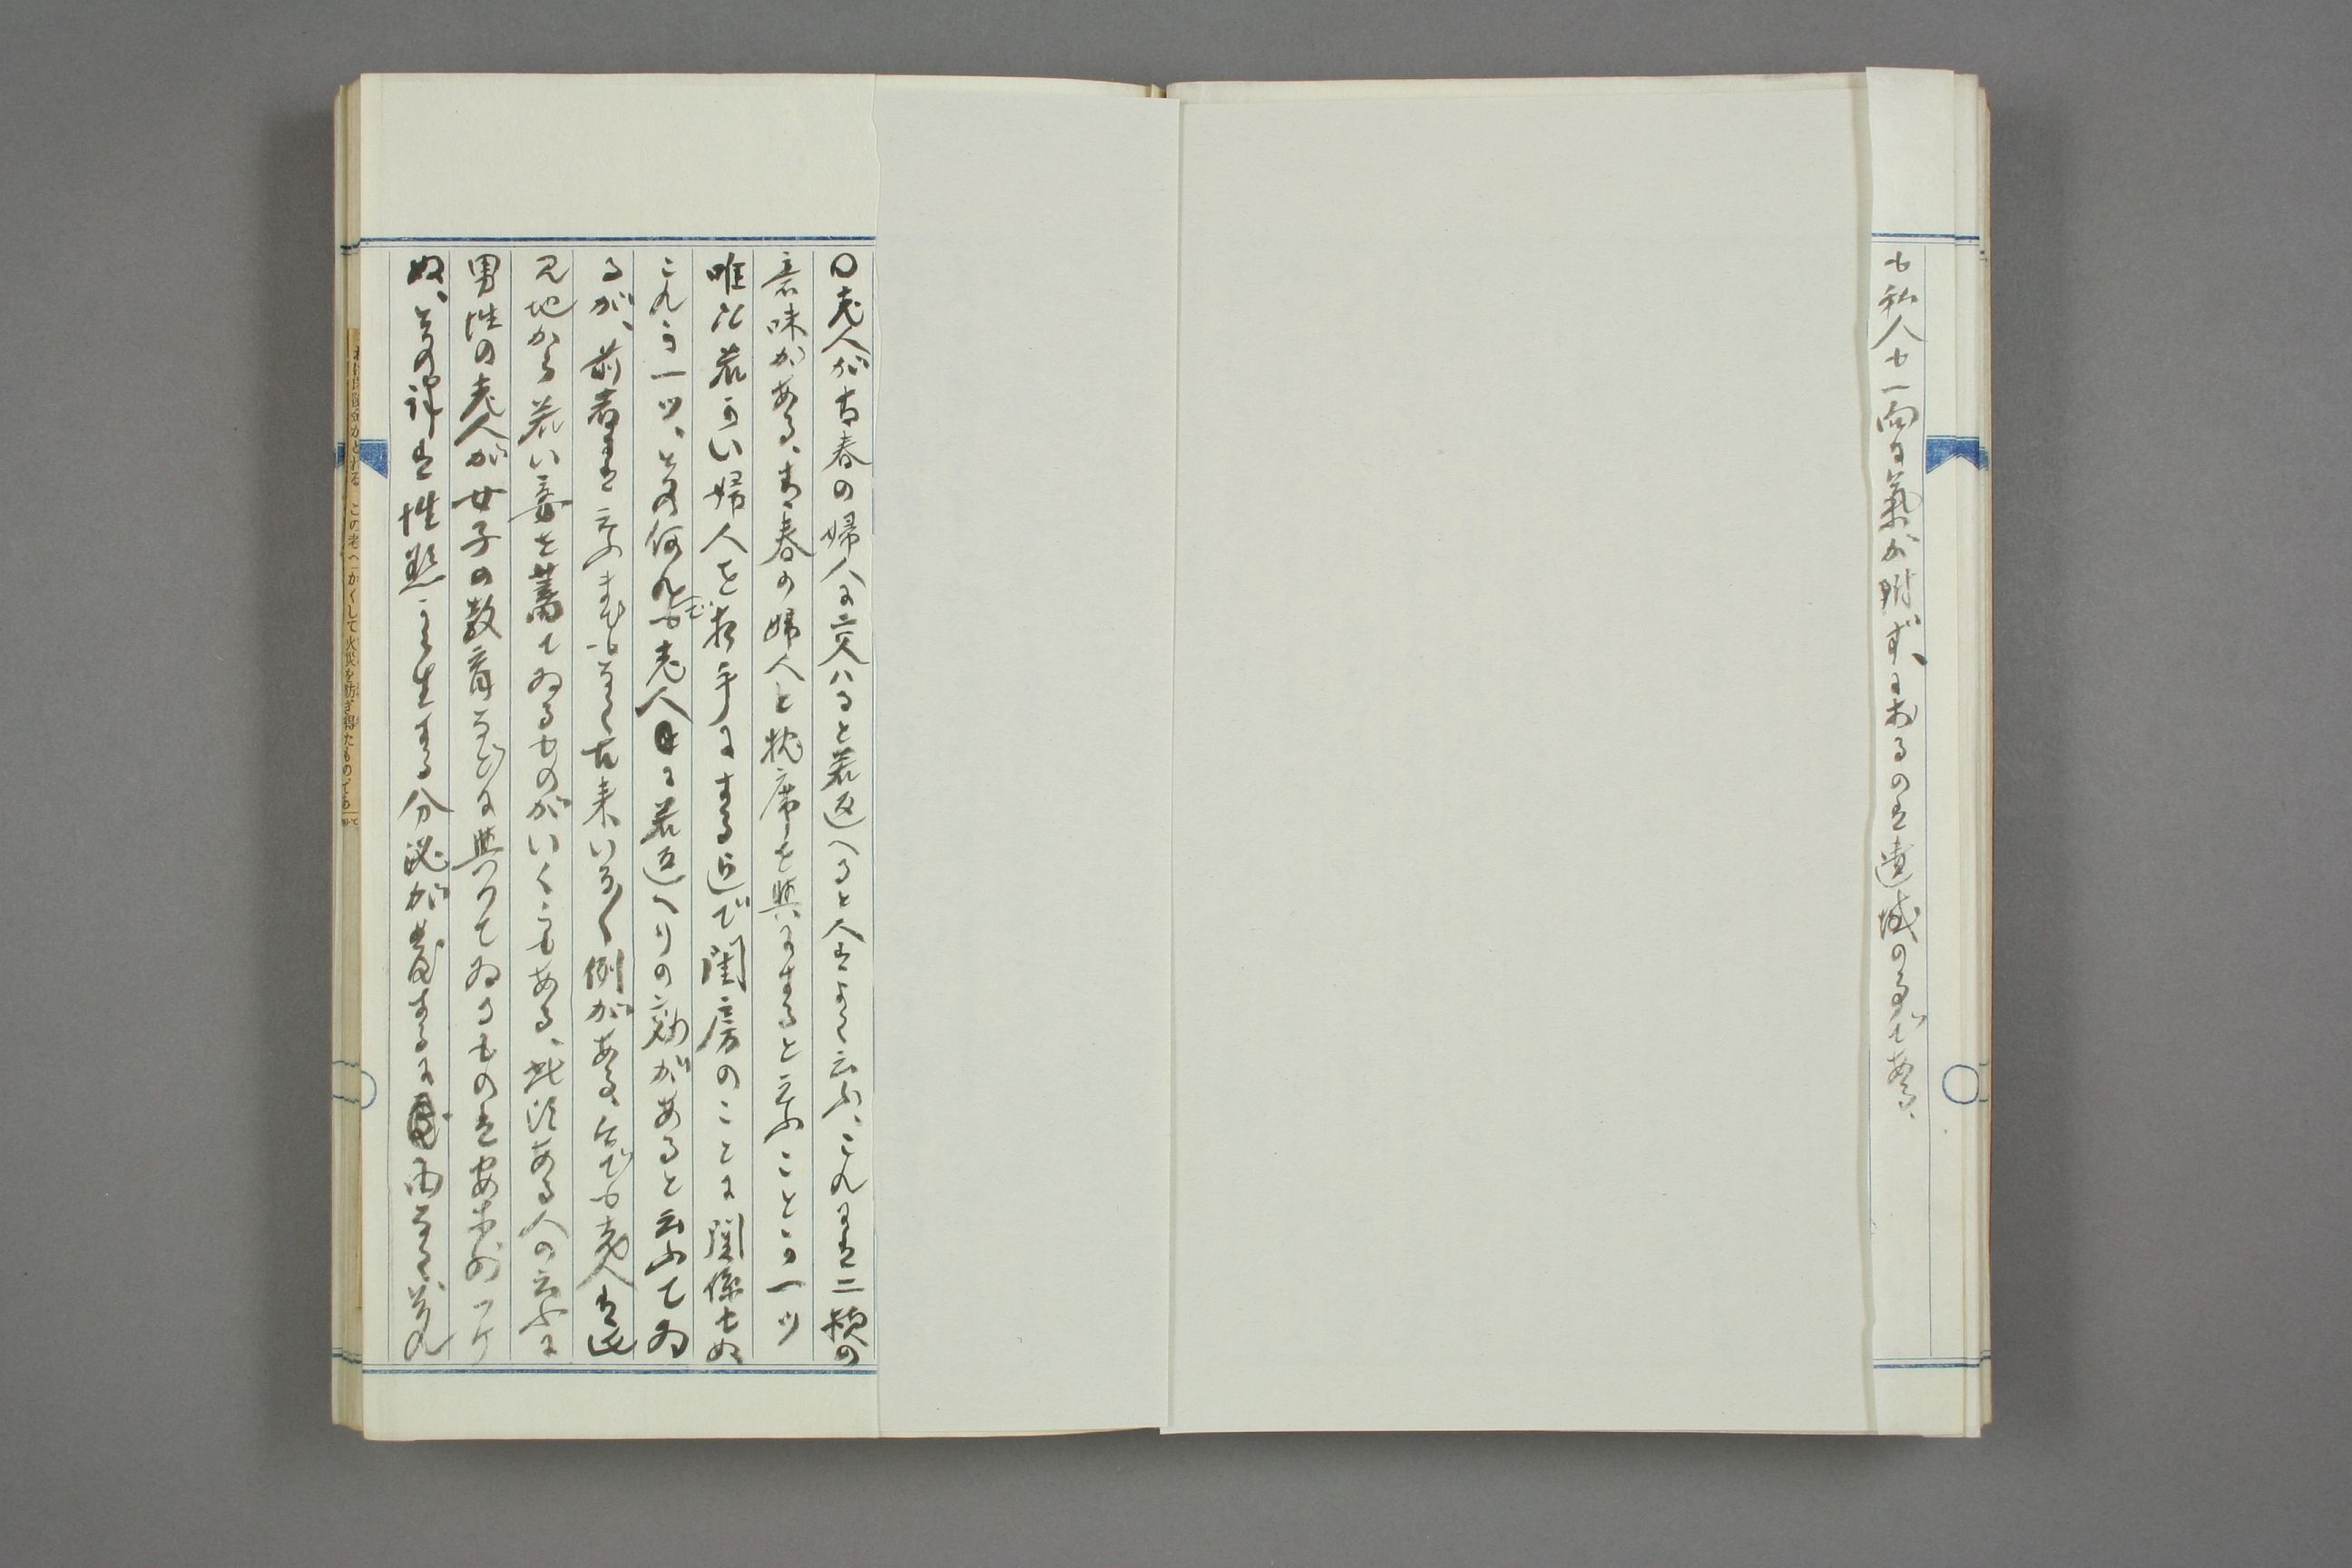 も私人も一向に氣が附ず、にあるのは遺憾の事である、
〇老人が青春の婦人に交ハると若返へると人はよく云ふ、これには二様の
意味がある、青春の婦人と枕席を與にすると云ふことゝ一ツ
唯だ若い婦人を相手にする迄で閨房のことに関係せぬ
これが一ツ、その何れでも老人に若返へりの効があると云ふてゐ
るが、前者は云ふまでもなく古来いろ〱例がある、今でも老人は此
見地から若い妾を蓄てゐるものがいくらもある、此頃ある人の云ふに
男性の老人が女子の教育などに與つてゐるものは安外フケ
ぬ、その譯は性慾に生する分泌が するに るく、それ
この老へ かくして火災を防ぎ得たものであ